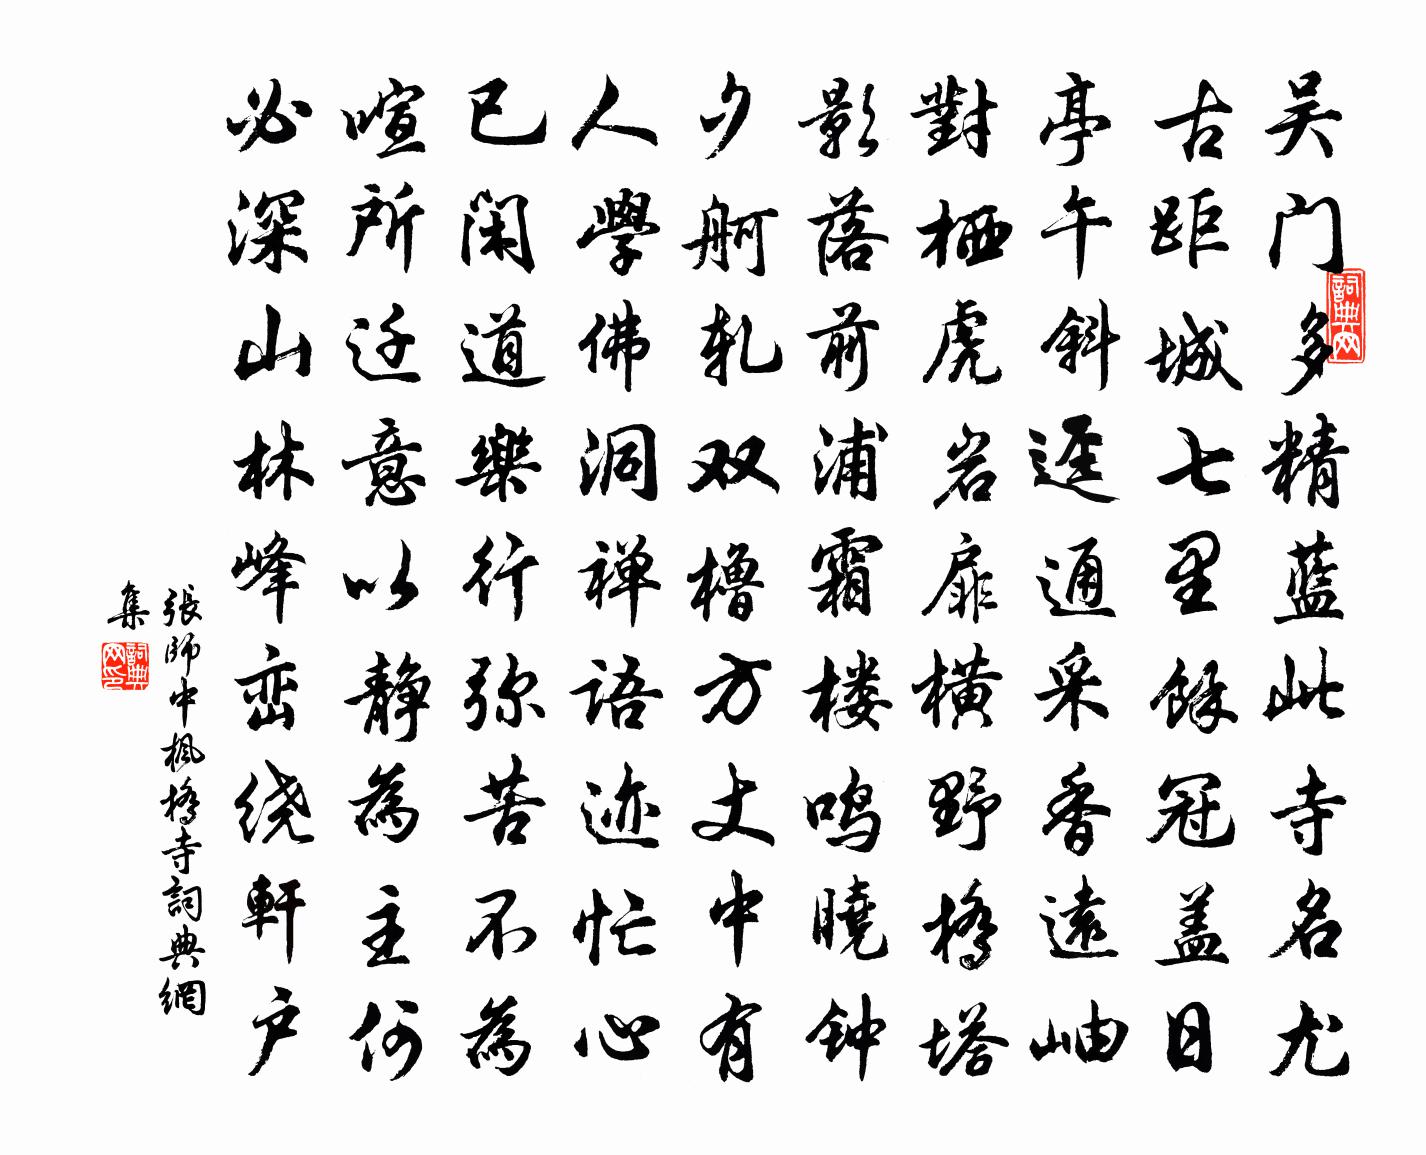 吴门多精藍此寺名尤
古距城七里餘冠盖日
亭午斜逕通采香遠岫
對栖虎岩扉横野橋塔
影落前浦霜楼鸣曉钟
夕舸轧双櫓方丈中有
人學佛洞禅語迹忙心
已闲道樂行弥苦不為
喧所迁意以静為主何
必深山林峰峦绕軒户
張師中楓橋寺詞典網
集
詞典网
詞典网印